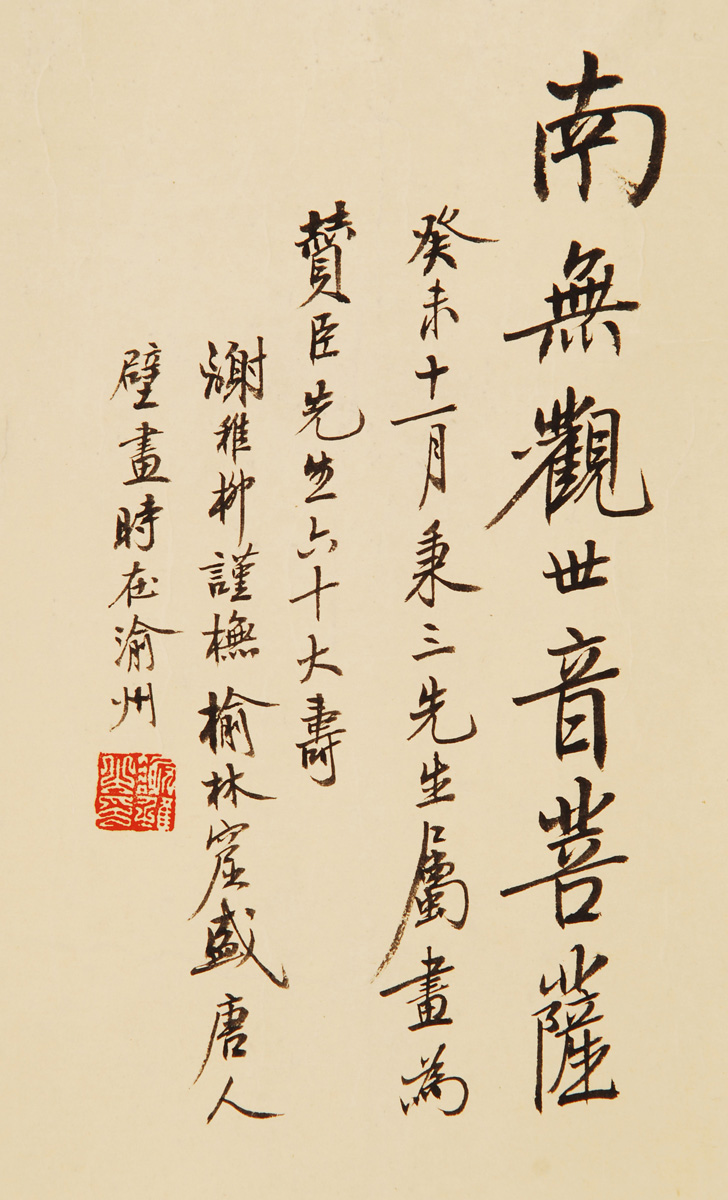 南無觀世音菩薩
癸未十一月秉三先生屬畫為
贊臣先生六十大壽
謝稚柳謹橅榆林窟盛唐人
壁畫時在渝州